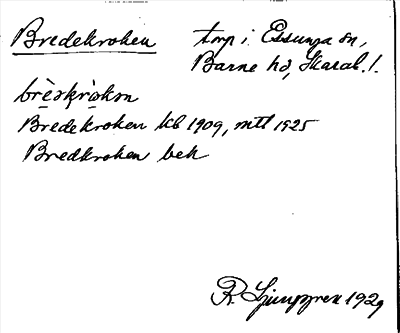 Bredekroken torp i Essunga sn,
Barne hd, Skarab. l.
brèskròkən
Bredekroken kb 1909, mtl 1925
Bredkroken bek
R. Ljunggren 1929